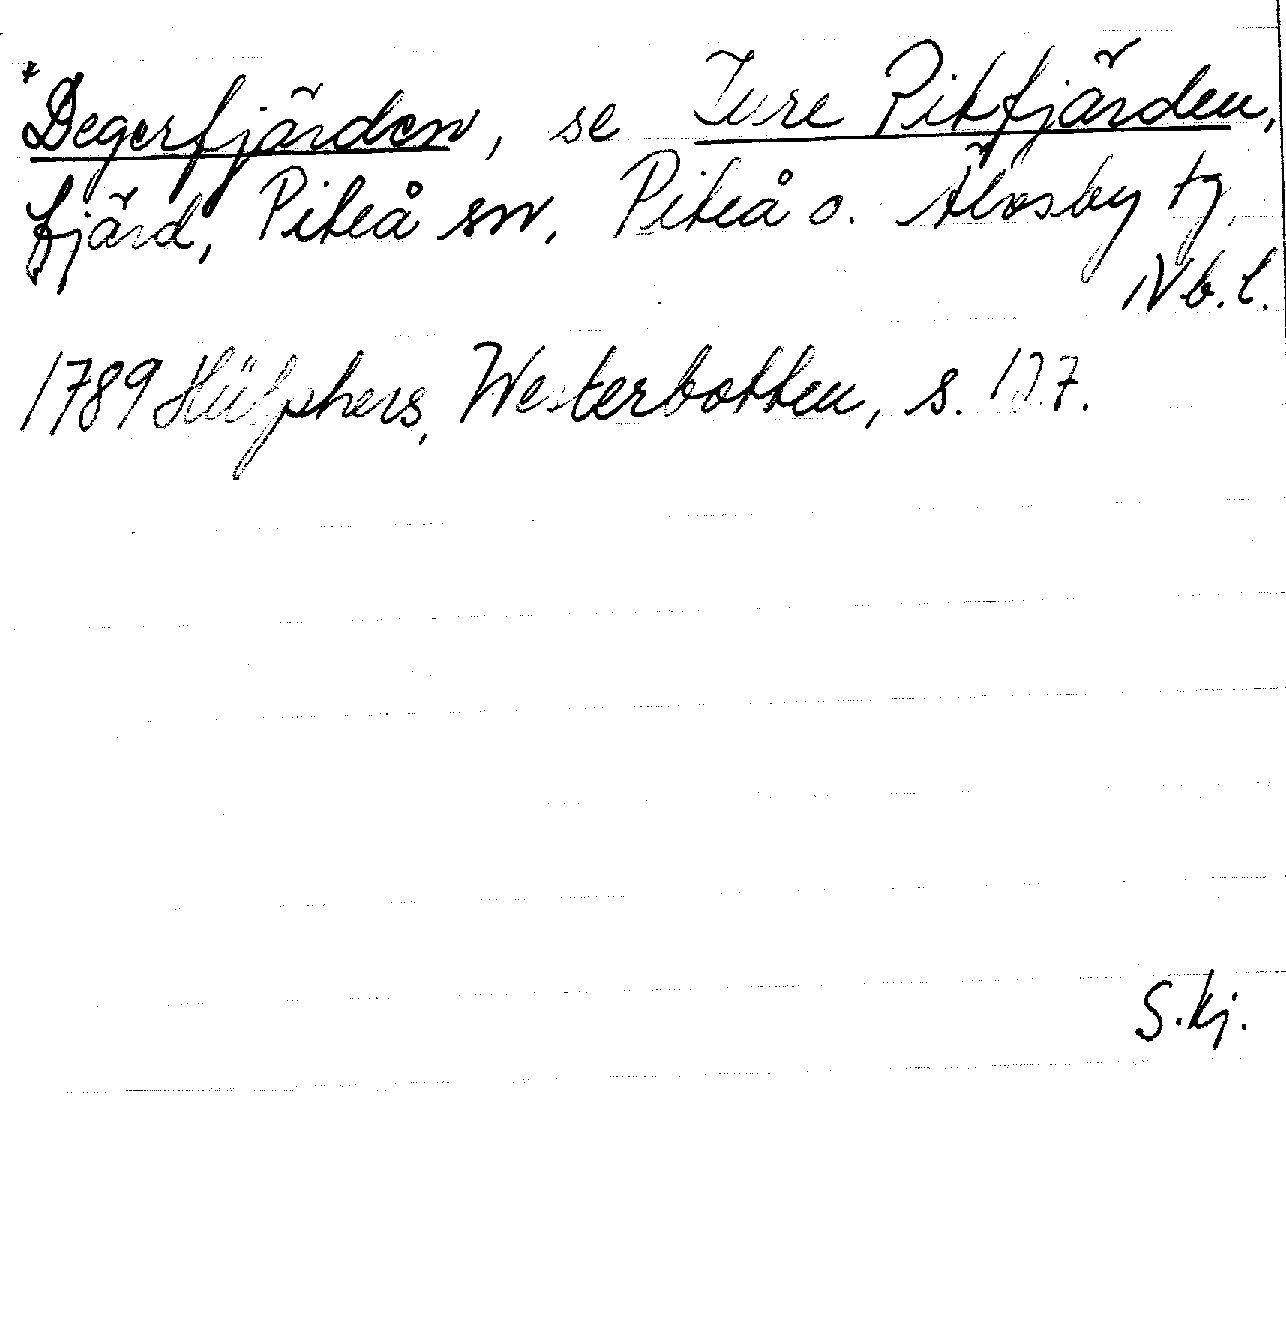 *Degerfjärden, se Inre Pitfjärden,
fjärd, Piteå sn, Piteå o. Älvsby tg,
Nb.l.
1789 Hülphers, Westerbotten, s. 127.
S.kj.